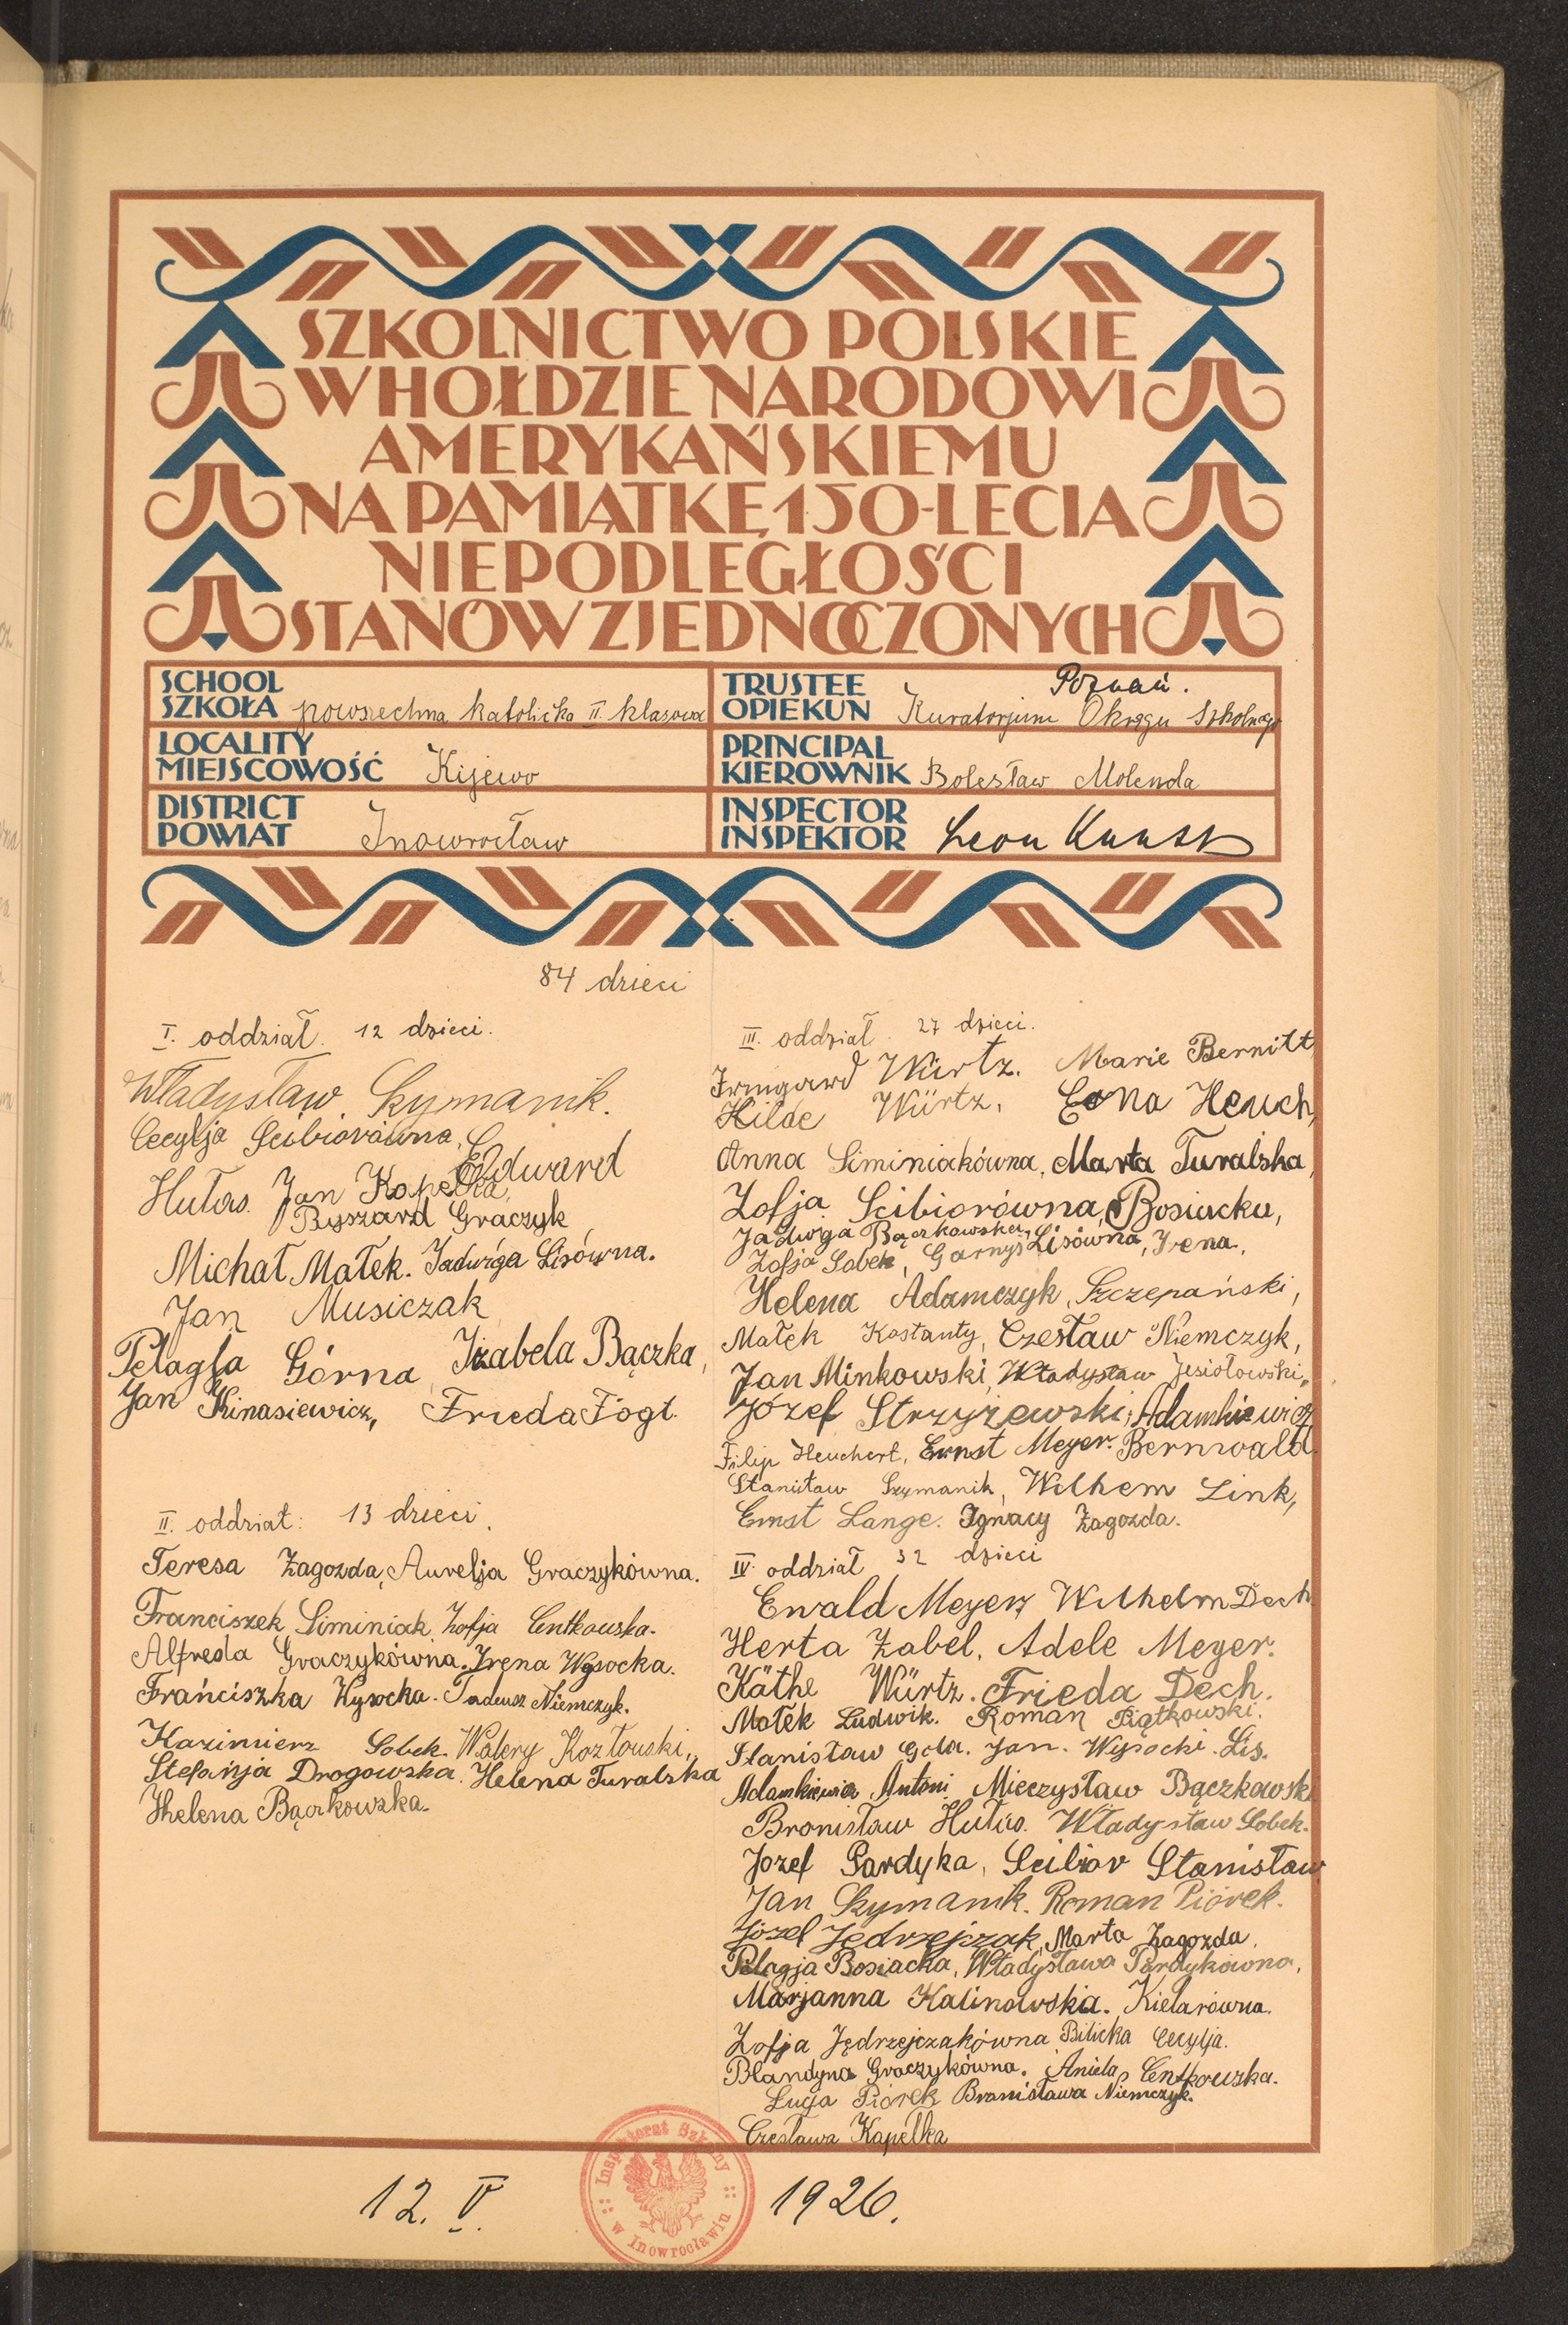 SZKOLNICTWO POLSKIE
W HOŁDZIE NARODOWI
AMERYKAŃSKIEMU
NA PAMIĄTKĘ 150-LECIA
NIEPODLEGŁOŚCI
STANÓW ZJEDNOCZONYCH
SCHOOL
SZKOŁA powszechna katolicka II. klasowa
TRUSTEE Poznań.
OPIEKUN Kuratorjum Okręgu Szkolnego
LOCALITY
MIEJSCOWOŚĆ Kijewo
PRINCIPAL
KIEROWNIK Bolesław Molenda
DISTRICT
POWIAT Inowrocław
INSPECTOR
INSPEKTOR Leon
84 dzieci
I. oddział. 12 dzieci.
Władysław. Szymanik.
Cecylja Scibiorówna,
Hulas. Jan Kapelka, Edward
Ryszard Graczyk
Michał Małek. Jadwiga Lisówna.
Jan Musiczak
Pelagja Górna, Izabela Bączka,
Jan Kinasiewicz, Frieda Fogt.
II. oddział: 13 dzieci.
Teresa Zagozda, Aurelja Graczykówna.
Franciszek Siminiak. Zofja Centkowska.
Alfreda Graczykówna. Irena Wysocka.
Franciszka Wysocka. Tadeusz Niemczyk.
Kazimierz Sobek. Walery Kozłowski,
Stefanja Drogowska. Helena Turalska
Helena Bączkowska.
III. oddział. 27 dzieci.
Irmgard Würtz. Marie Bernitt
Hilde Würtz, Edna Heuch,
Anna Siminiakówna, Marta Turalska,
Zofja Scibiorówna, Bosiacka,
Jadwiga Bączkowska, Lisówna, Irena,
Zofja Sobek, Garnyś
Helena Adamczyk, Szczepański,
Małek Kostanty, Czesław Niemczyk,
Jan Minkowski, Władysław Jesiołowski,
Józef Strzyżewski, Adamkiewicz
Filip Heuchert, Ernst Meyer. Bernwald.
Stanisław Szymanik, Wilhem Link,
Ernst Lange. Ignacy Zagozda.
IV. oddział 32 dzieci
Ewald Meyer, Wilhelm Dech
Herta Zabel, Adele Meyer.
Käthe Würtz. Frieda Dech.
Małek Ludwik. Roman Piątkowski.
Stanisław Gola. Jan. Wysocki. Lis.
Adamkiewicz Antoni Mieczysław Bączkowski
Bronisław Hulas. Władysław Sobek.
Jozef Pardyka, Scibior Stanisław
Jan Szymanik. Roman Piórek.
Józef Jędrzejczak, Marta Zagozda.
Pelagja Bosiacka, Władysława Pardykówna,
Marjanna Kalinowska. Kielarówna.
Zofja Jędrzejczakówna Bilicka Cecylja.
Blandyna Graczykówna. Aniela Centkowska.
Łucja Piórek Bronisława Niemczyk.
Czesława Kapelka
Inspektorat Szkolny
w Inowrocławiu
12. V. 1926.